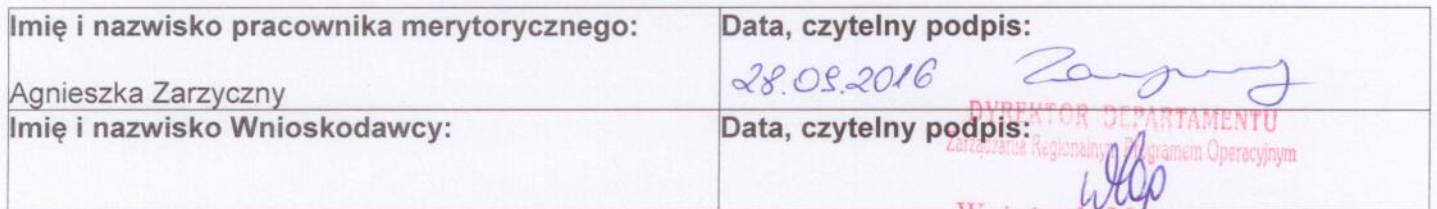 Imię i nazwisko pracownika merytorycznego:
Data, czytelny podpis:
28.09.2016
Agnieszka Zarzyczny
Imię i nazwisko Wnioskodawcy:
Data, czytelny podpis:
DYREKTOR DEPARTAMENTU
Zarządzania Regionalnym Programem Operacyjnym